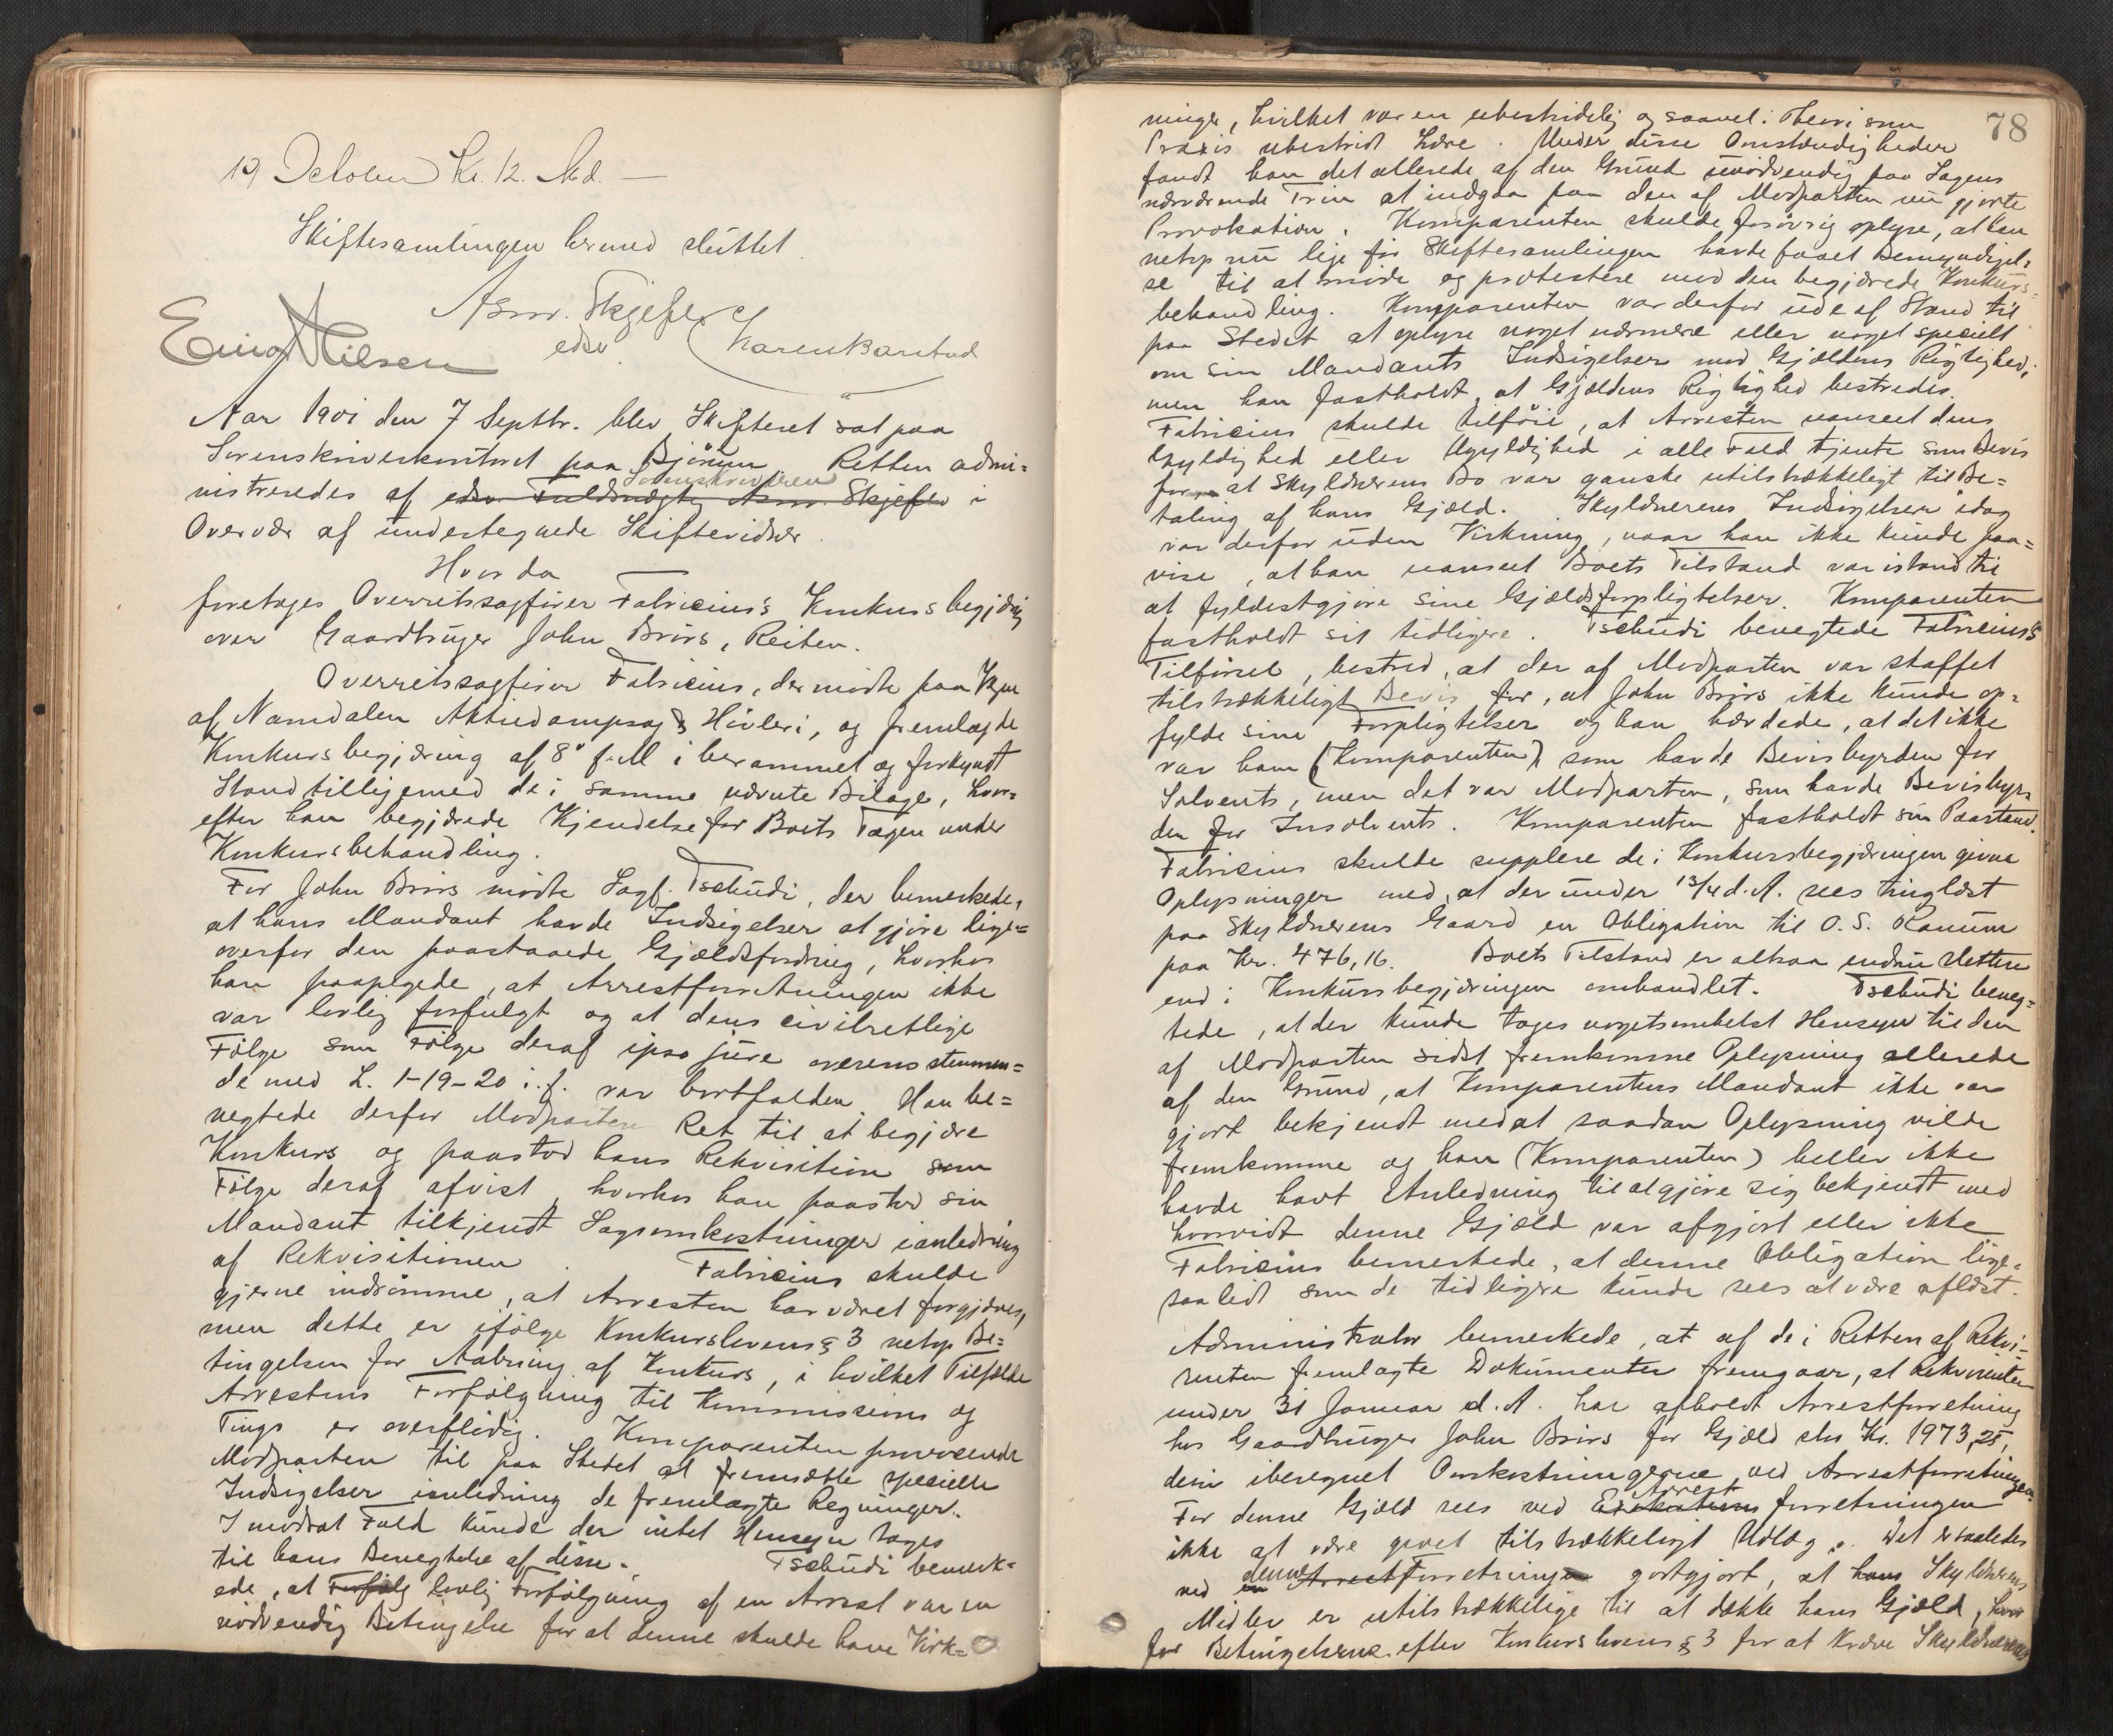 19 October Kl. 12 Md. —
Skiftesamlingen hermed sluttet.
Asmr. Skjeflo
edsv.
Einar Nilsen
Karen Barstad
Aar 1901 den 7 Septbr. blev Skifteret sat paa
Sorenskriverkontoret paa Bjørum. Retten admi=
nistreredes af edsv. Fuldmægtig Asmr. Skjeflo Sorenskriveren i
Overvær af undertegnede Skiftevidner.
Hvorda
foretages Overretssagfører Fabricius's Konkursbegjæring
over Gaardbruger John Brørs, Reiten.
Overretssagfører Fabricius, der mødte paa Vegne
af Namdalen Aktiedampsag & Høvleri, og fremlagde
Konkursbegjæring af 8de f. M i berammet og forkyndt
Stand tilligemed de i samme nævnte Bilage, hvor=
efter han begjærede Kjendelse for Boets Tagen under
Konkursbehandling.
For John Brørs mødte Sagf. Tschudi, der bemerkede,
at hans Mandant havde Indsigelser at gjøre lige=
overfor den paastaaede Gjældsfordring, hvorhos
han paapegede, at Arrestforretningen ikke
var lovlig forfulgt og at dens civilretlige
Følge som Følge deraf ipso jure overensstemmen=
de med L. 1-19-20 i. f. var bortfalden. Han be=
negtede derfor Modparten Ret til at begjære
Konkurs og paastod hans Rekvisition som
Følge deraf afvist, hvorhos han paastod sin
Mandant tilkjendt Sagsomkostninger i anledning
af Rekvisitionen. Fabricius skulde
gjerne indrømme, at Arresten har været forgjæves,
men dette er ifølge Konkurslovens § 3 netop Be=
tingelsen for Aabning af Konkurs, i hvilket Tilfælde
Arrestens Forfølgning til Kommissions og
Tings er overflødig. Komparenten provocerede
Modparten til paa Stedet at fremsætte specielle
Indsigelser i anledning de fremlagte Regninger.
I modsat Fald kunde der intet Hensyn tages
til hans Benegtelse af disse. Tschudi bemerk=
ede, at Forfølg lovlig Forfølgning af en Arrest var en
nødvendig Betingelse for at denne skulde have Virk=
78
ninger, hvilket var en ubestridelig og saavel i Theori som
Praxis ubestridt Lære. Under disse Omstændigheder
fandt han det allerede af den Grund unødvendig paa Sagens
nærværende Trin at indgaa paa den af Modparten nu gjorte
Provokation. Komparenten skulde forøvrig oplyse, at han
netop nu lige før Skiftesamlingen havde faaet Bemyndigel=
se til at møde og protestere mod den begjærede Konkurs=
behandling. Komparenten var derfor ude af Stand til
paa Stedet at oplyse noget nærmere eller noget specielt
om sin Mandants Indsigelser mod Gjældens Rigtighed,
men han fastholdt, at Gjældens Rigtighed bestredes.
Fabricius skulde tilføie, at Arresten uanseet dens
Gyldighed eller Ugyldighed i alle Fald tjente som Bevis
for at Skyldnerens Bo var ganske utilstrækkeligt til Be=
taling af hans Gjæld. Skyldnerens Indsigelser idag
var derfor uden Virkning, naar han ikke kunde paa=
vise, at han uanseet Boets Tilstand var istand til
at fyldestgjøre sine Gjældsforpligtelser. Komparenten
fastholdt sit tidligere. Tschudi benegtede Fabricius's
Tilførsel, bestred, at der af Modparten var skaffet
tilstrækkeligt Bevis for, at John Brørs ikke kunde op=
fylde sine Forpligtelser og han hævdede, at det ikke
var ham (Komparenten) som havde Bevisbyrden for
Solvents, men det var Modparten, som havde Bevisbyr=
den for Insolvents. Komparenten fastholdt sin Paastand.
Fabricius skulde supplere de i Konkursbegjæringen givne
Oplysninger med, at der under 13/4 d. A. sees tinglæst
paa Skyldnerens Gaard en Obligation til O. S. Ranum
paa Kr. 476,16. Boets Tilstand er altsaa endnu slettere
end i Konkursbegjæringen omhandlet. Tschudi beneg=
tede, at der kunde tages nogetsomhelst Hensyn til den
af Modparten sidst fremkomne Oplysning allerede
af den Grund, at Komparentens Mandant ikke var
gjort bekjendt med at saadan Oplysning vilde
fremkomme og han (Komparenten) heller ikke
havde havt Anledning til at gjøre sig bekjendt med
hvorvidt denne Gjæld var afgjort eller ikke
Fabricius bemerkede, at denne Obligation lige=
saalidt som de tidligere kunde sees at være aflæst.
Administrator bemerkede, at af de i Retten af Rekvi=
renten fremlagte Dokumenter fremgaar, at Rekvirenten
under 31 Januar d. A. har afholdt Arrestforretning
hos Gaardbruger John Brørs for Gjæld stor Kr. 1973,25,
deri iberegnet Omkostningerne ved Arrestforretningen.
For denne Gjæld sees ved Exekutions Arrest forretningen
ikke at være gjort tilstrækkeligt Udlæg. Det er saaledes
ved en denne Arrest Forretningen godtgjort, at hans Skyldnerens
Midler er utilstrækkelige til at dække hans Gjæld, hvor
for Betingelserne efter Konkurslovens § 3 for at kræve Skyldnerens